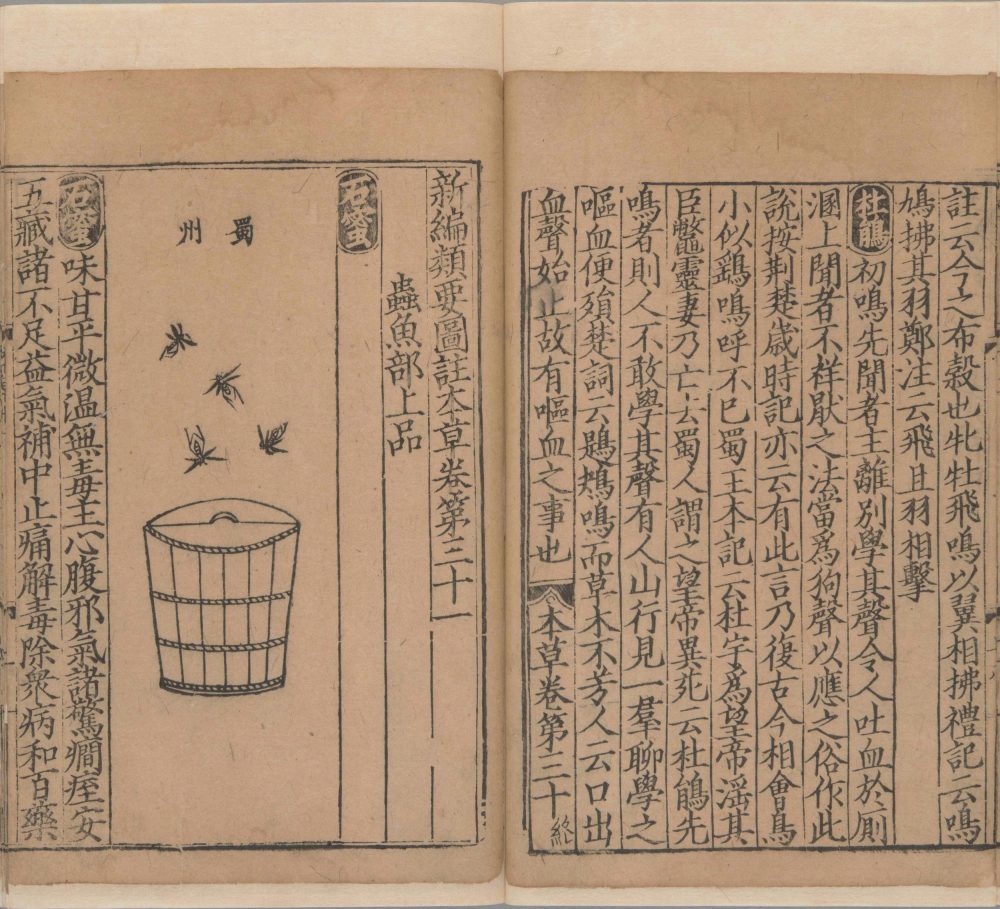 註云今之布穀也牝牡飛鳴以翼相拂禮記云鳴
鳩拂其羽鄭注云飛且羽相擊
杜鵑初鳴先聞者主離別學其聲令人吐血於厠
溷上聞者不祥厭之法當爲狗聲以應之俗作此
說按荆楚歲時記亦云有此言乃復古今相會鳥
小似鷂鳴呼不已蜀王本記云杜宇爲望帝淫其
臣鼈靈妻乃亡去蜀人謂之望帝異苑云杜鵑先
鳴者則人不敢學其聲有人山行見一羣聊學之
嘔血便殞楚詞云鶗鴂鳴而草木不芳人云口出
血聲始止故有嘔血之事也
本草卷第三十終
新編類要圖註本草卷第三十一
蟲魚部上品
石蜜
蜀州
石蜜味甘平微温無毒主心腹邪氣諸驚癇痓安
五藏諸不足益氣補中止痛解毒除衆病和百藥